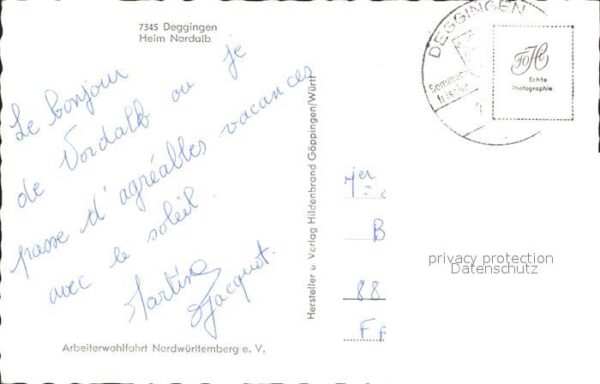 7345 Deggingen
Heim Nordalb
Le bonjour
de Nordalb ou je
passe d'agréables vacances
avec le soleil.
Martine
Jacquot.
Arbeiterwohlfahrt Nordwürttemberg e. V.
Hersteller u. Verlag Hildenbrand Göppingen/Württ
DEGGINGEN
Sommer
frische
Echte
Photographie
B
88
privacy protection
Datenschutz